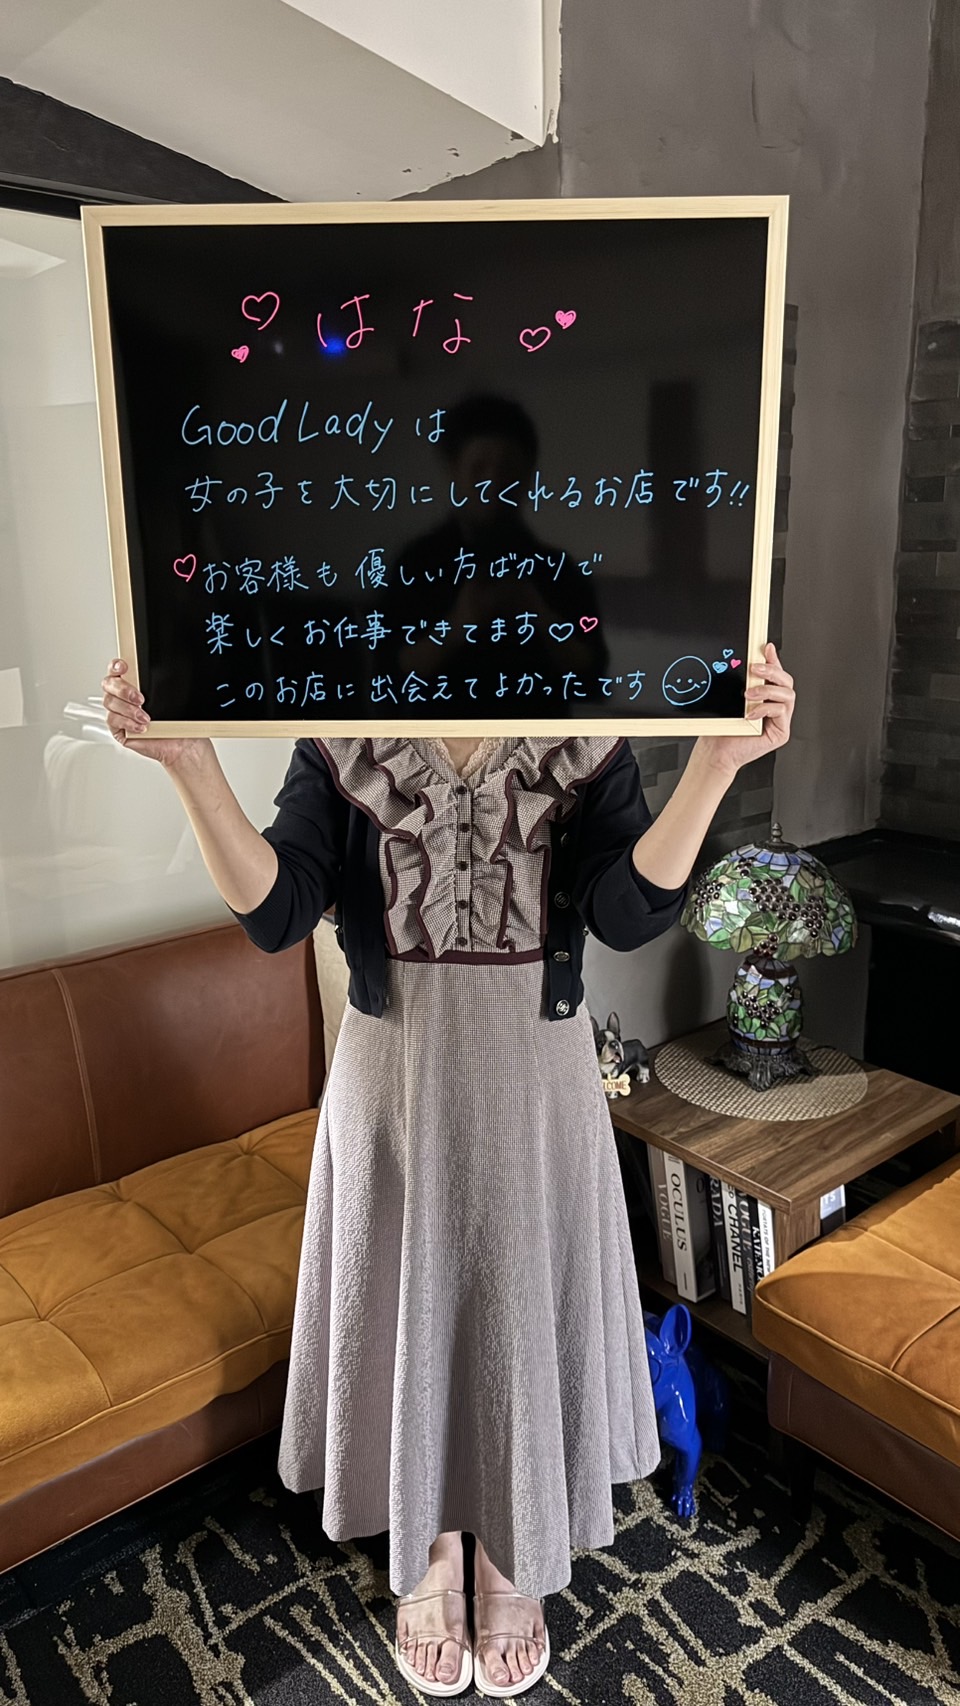 はな
Good Lady は
女の子を大切にしてくれるお店です!!
お客様も優しい方ばかりで
楽しくお仕事できてます
このお店に出会えてよかったです
OCULUS
VOGUE
CHANEL
VOGUE